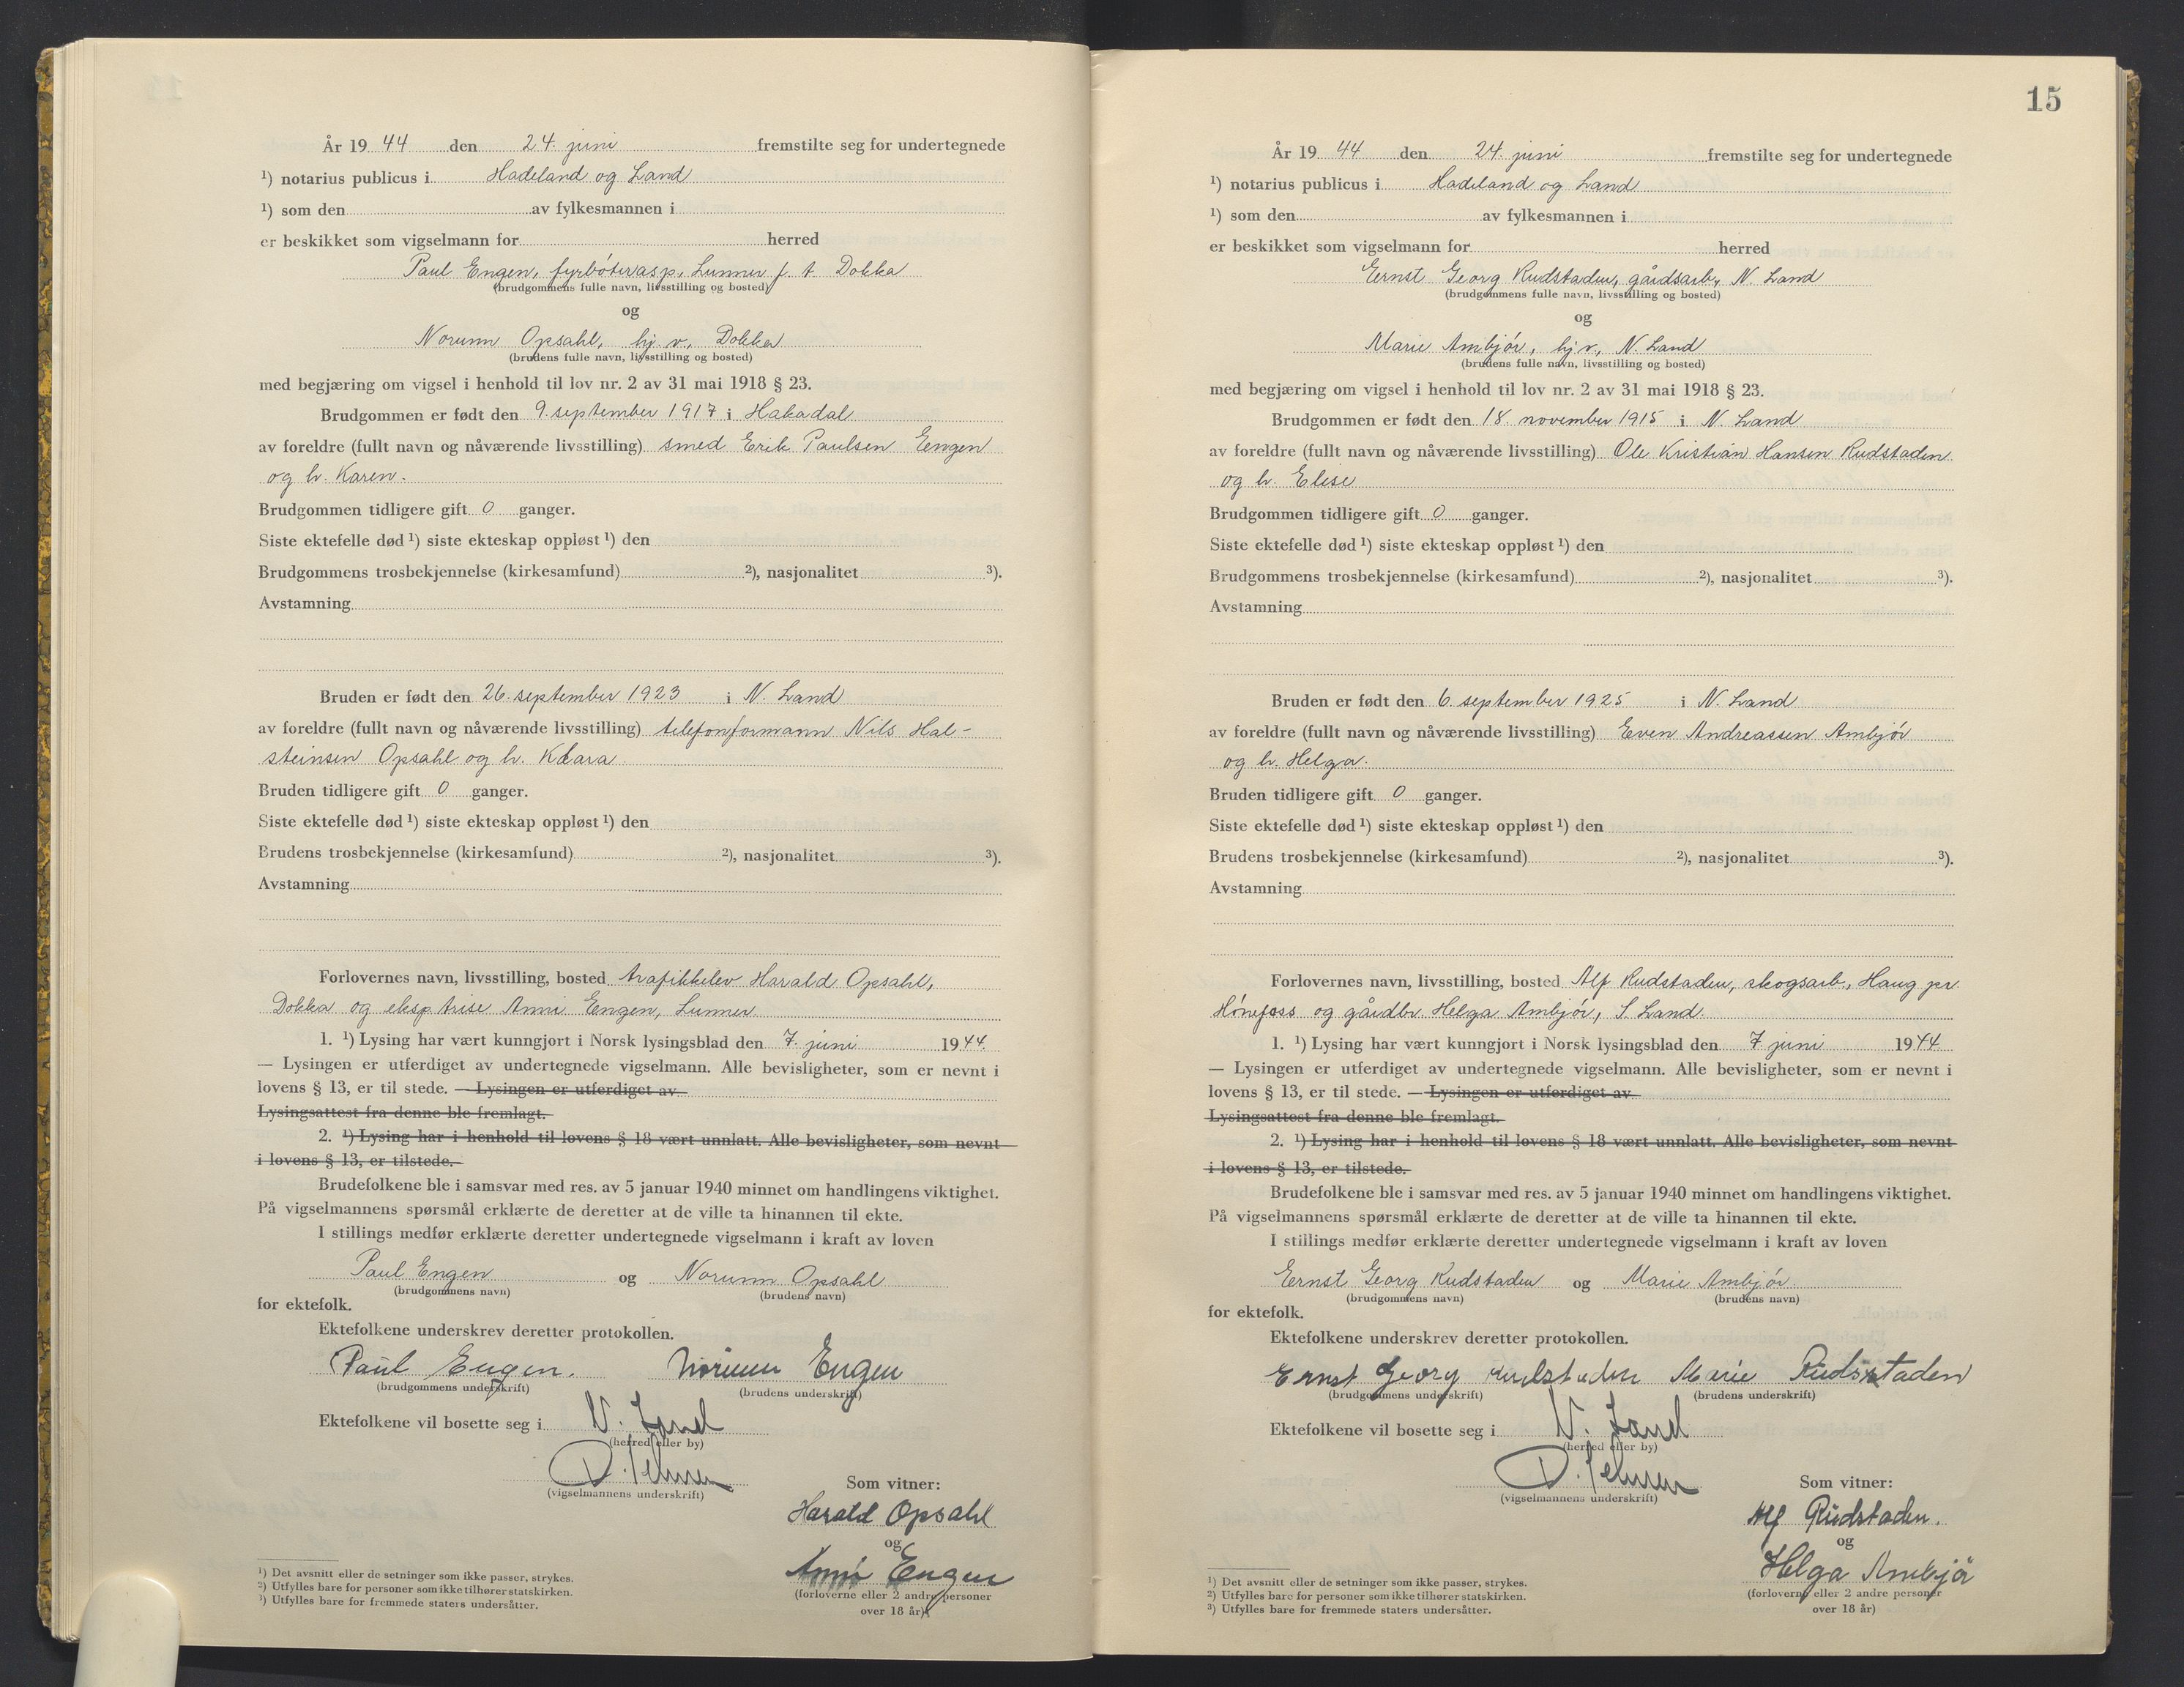 År 19 44 den 24. juni fremstilte seg for undertegnede
¹) notarius publicus i Hadeland og Land
¹) som den av fylkesmannen i
er beskikket som vigselmann for herred
Paul Engen, fyrbøterasp, Lunner p. t. Dokka
(brudgommens fulle navn, livsstilling og bosted)
og
Norunn Opsahl, hj. v., Dokka
(brudens fulle navn, livsstilling og bosted)
med begjæring om vigsel i henhold til lov nr. 2 av 31 mai 1918 § 23.
Brudgommen er født den 9. september 1917 i Hakadal
av foreldre (fullt navn og nåværende livsstilling) smed Erik Paulsen Engen
og h. Karen.
Brudgommen tidligere gift 0 ganger.
Siste ektefelle død ¹) siste ekteskap oppløst ¹) den
Brudgommens trosbekjennelse (kirkesamfund) ²), nasjonalitet ³).
Avstamning
Bruden er født den 26. september 1923 i N. Land
av foreldre (fullt navn og nåværende livsstilling) telefonformann Nils Hal-
steinsen Opsahl og h. Klara.
Bruden tidligere gift 0 ganger.
Siste ektefelle død ¹) siste ekteskap oppløst ¹) den
Brudens trosbekjennelse (kirkesamfund) ²), nasjonalitet ³).
Avstamning
Forlovernes navn, livsstilling, bosted trafikkelev Harald Opsahl,
Dokka og eksp.trise Anni Engen, Lunner
1. ¹) Lysing har vært kunngjort i Norsk lysingsblad den 7. juni 1944.
— Lysingen er utferdiget av undertegnede vigselmann. Alle bevisligheter, som er nevnt i
lovens § 13, er til stede. — Lysingen er utferdiget av
Lysingsattest fra denne ble fremlagt.
2. ¹) Lysing har i henhold til lovens § 18 vært unnlatt. Alle bevisligheter, som nevnt
i lovens § 13, er tilstede.
Brudefolkene ble i samsvar med res. av 5 januar 1940 minnet om handlingens viktighet.
På vigselmannens spørsmål erklærte de deretter at de ville ta hinannen til ekte.
I stillings medfør erklærte deretter undertegnede vigselmann i kraft av loven
Paul Engen og Norunn Opsahl
(brudgommens navn) (brudens navn)
for ektefolk.
Ektefolkene underskrev deretter protokollen.
Paul Engen. Norunn Engen
(brudgommens underskrift) (brudens underskrift)
Ektefolkene vil bosette seg i N. Land
(herred eller by)
(vigselmannens underskrift)
Som vitner:
Harald Opsahl
og
Anni Engen
(forloverne eller 2 andre personer
over 18 år)
¹) Det avsnitt eller de setninger som ikke passer, strykes.
²) Utfylles bare for personer som ikke tilhører statskirken.
³) Utfylles bare for fremmede staters undersåtter.
15
År 19 44 den 24. juni fremstilte seg for undertegnede
¹) notarius publicus i Hadeland og Land
¹) som den av fylkesmannen i
er beskikket som vigselmann for herred
Ernst Georg Rudstaden, gårdsarb., N. Land
(brudgommens fulle navn, livsstilling og bosted)
og
Marie Ambjór, hj.v., N. Land
(brudens fulle navn, livsstilling og bosted)
med begjæring om vigsel i henhold til lov nr. 2 av 31 mai 1918 § 23.
Brudgommen er født den 18. november 1915 i N. Land
av foreldre (fullt navn og nåværende livsstilling) Ole Kristian Hansen Rudstaden
og h. Elise
Brudgommen tidligere gift 0 ganger.
Siste ektefelle død ¹) siste ekteskap oppløst ¹) den
Brudgommens trosbekjennelse (kirkesamfund) ²), nasjonalitet ³).
Avstamning
Bruden er født den 6. september 1925 i N. Land
av foreldre (fullt navn og nåværende livsstilling) Even Andreassen Ambjór
og h. Helga.
Bruden tidligere gift 0 ganger.
Siste ektefelle død ¹) siste ekteskap oppløst ¹) den
Brudens trosbekjennelse (kirkesamfund) ²), nasjonalitet ³).
Avstamning
Forlovernes navn, livsstilling, bosted Alf Rudstaden, skogsarb., Haug pr.
Hónefoss og gårdbr. Helga Ambjór, S. Land.
1. ¹) Lysing har vært kunngjort i Norsk lysingsblad den 7 juni 1944
— Lysingen er utferdiget av undertegnede vigselmann. Alle bevisligheter, som er nevnt i
lovens § 13, er til stede. — Lysingen er utferdiget av
Lysingsattest fra denne ble fremlagt.
2. ¹) Lysing har i henhold til lovens § 18 vært unnlatt. Alle bevisligheter, som nevnt
i lovens § 13, er tilstede.
Brudefolkene ble i samsvar med res. av 5 januar 1940 minnet om handlingens viktighet.
På vigselmannens spørsmål erklærte de deretter at de ville ta hinannen til ekte.
I stillings medfør erklærte deretter undertegnede vigselmann i kraft av loven
Ernst Georg Rudstaden og Marie Ambjór.
(brudgommens navn) (brudens navn)
for ektefolk.
Ektefolkene underskrev deretter protokollen.
Ernst Georg Rudstaden Marie Rudstaden
(brudgommens underskrift) (brudens underskrift)
Ektefolkene vil bosette seg i N. Land
(herred eller by)
(vigselmannens underskrift)
Som vitner:
Alf Rudstaden.
og
Helga Ambjör
(forloverne eller 2 andre personer
over 18 år)
¹) Det avsnitt eller de setninger som ikke passer, strykes.
²) Utfylles bare for personer som ikke tilhører statskirken.
³) Utfylles bare for fremmede staters undersåtter.